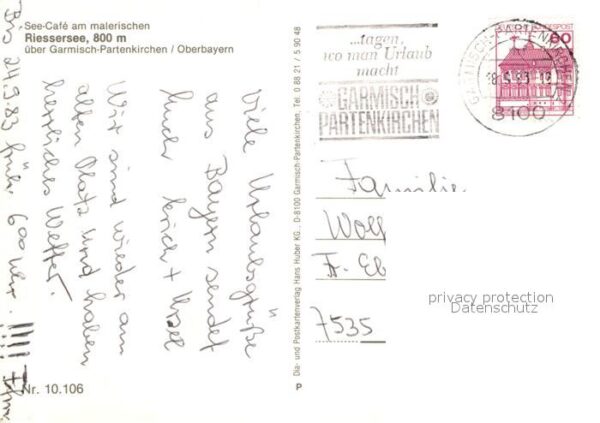 See-Café am malerischen
Riessersee, 800 m
über Garmisch-Partenkirchen / Oberbayern
Viele Urlaubsgrüße
aus Bayern sendet
Euch Erich + Ursel
Wir sind wieder am
alten Platz und haben
herrliches Wetter.
Bis 24.9.83 früh, 600 Uhr. !!!!
Nr. 10.106
Dia- und Postkartenverlag Hans Huber KG., D-8100 Garmisch-Partenkirchen, Tel. 0 88 21 / 5 90 48
P
...tagen,
wo man Urlaub
macht
GARMISCH
PARTENKIRCHEN
GARMISCH-PARTENKIRCHEN
8100
60
Familie
Wolf
Fr. Eb
7535
privacy protection
Datenschutz